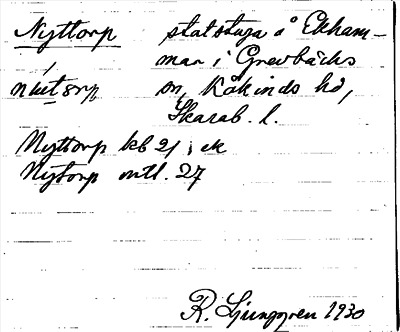 Nyttorp statstuga å Ekham-
mar i Grevbäcks
nỳtorp sn, Kåkinds hd,
Skarab. l.
Nyttorp kb 21, ek
Nytorp mtl. 27
R. Ljunggren 1930